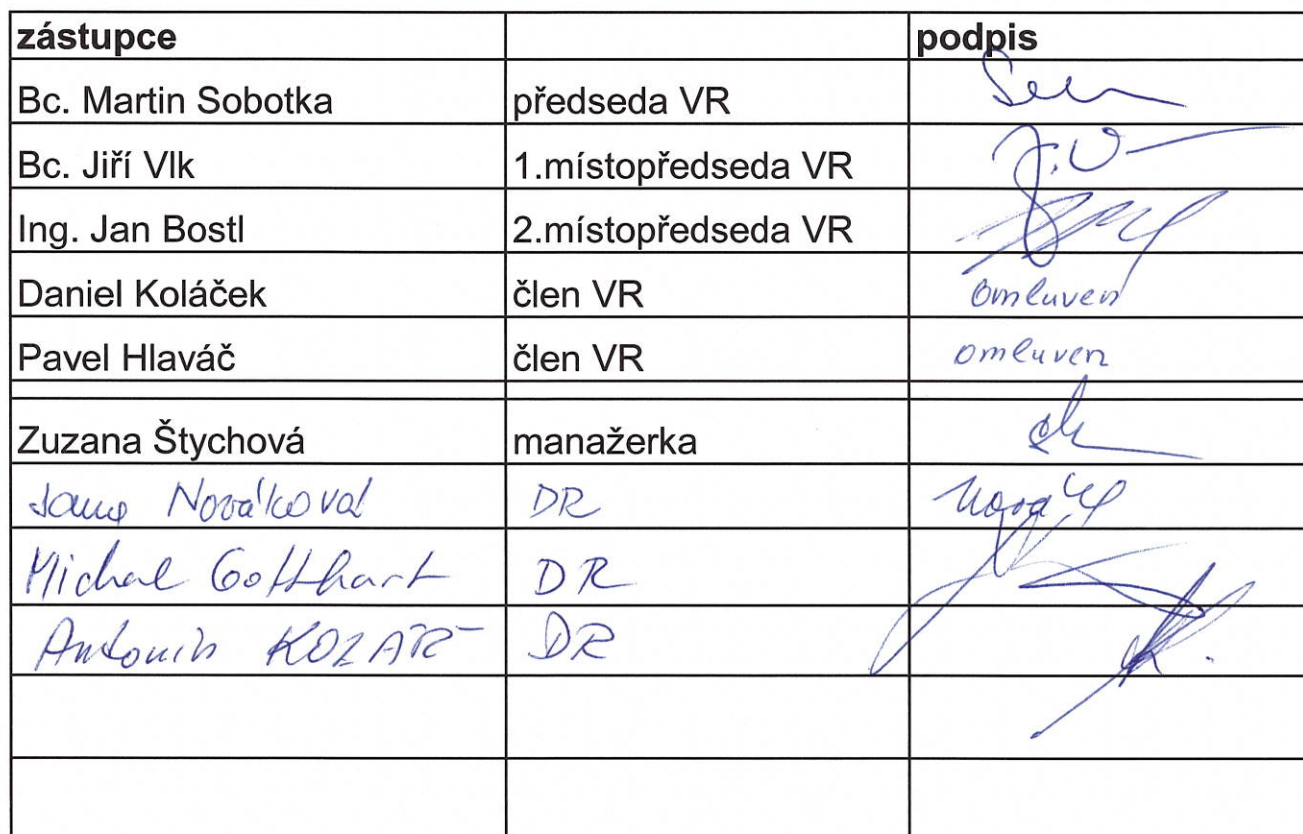 zástupce podpis
Bc. Martin Sobotka předseda VR
Bc. Jiří Vlk 1.místopředseda VR
Ing. Jan Bostl 2.místopředseda VR
Daniel Koláček člen VR omluven
Pavel Hlaváč člen VR omluven
Zuzana Štychová manažerka
Jana Nováková DR
Michal Gotthart DR
Antonín KOZÁŘ DR